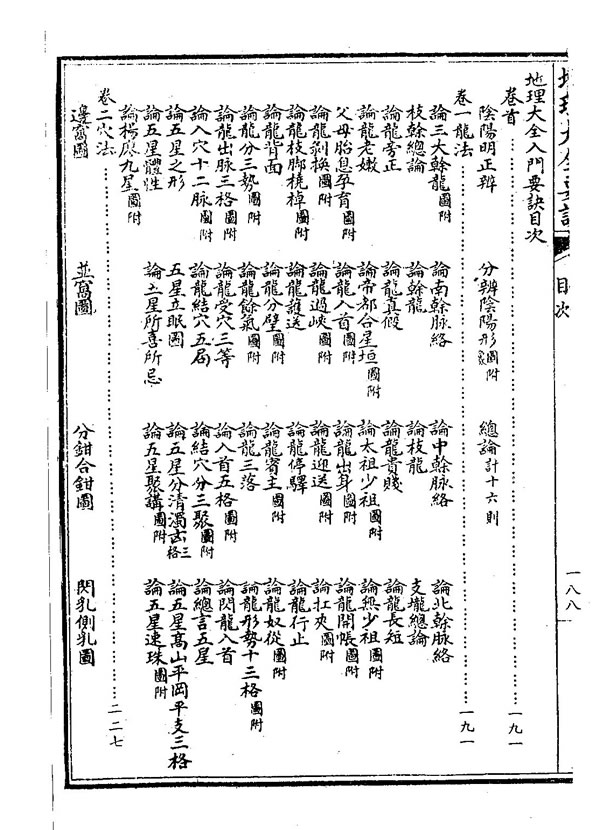 目次
一八八
地理大全入門要訣目次
卷首……一九一
陰陽明正辨　分辨陰陽形圖附　總論計十六則
卷一龍法……一九一
論三大幹龍圖附　論南幹脈絡　論中幹脈絡　論北幹脈絡
枝幹總論　論幹龍　論枝龍　支壠總論
論龍旁正　論龍真假　論龍貴賤　論龍長短
論龍老嫩　論帝都合星垣圖附　論太祖少祖圖附　論無少祖圖附
父母胎息孕育圖附　論龍入首圖附　論龍出身圖附　論龍開帳圖附
論龍剝換圖附　論龍過峽圖附　論龍迎送圖附　論扛夾圖附
論龍枝脚橈棹圖附　論龍護送　論龍停驛　論龍行止
論龍背面　論龍分壁圖附　論龍賓主圖附　論龍奴從圖附
論龍分三勢圖附　論龍餘氣圖附　論龍三落　論龍形勢十三格圖附
論龍出脈三格圖附　論龍受穴三等　論入首五格圖附　論閃龍入首
論入穴十二脈圖附　論龍結穴五局　論結穴分三聚圖附　論總言五星
論五星之形　五星立眠圖　論五星分清濁三格　論五星高山平岡平支三格
論五星體性　論五星所喜所忌　論五星聚講圖附　論五星連珠圖附
論楊廖九星圖附
卷二穴法……二二七
邊窩圖　並窩圖　分鉗合鉗圖　閃乳側乳圖